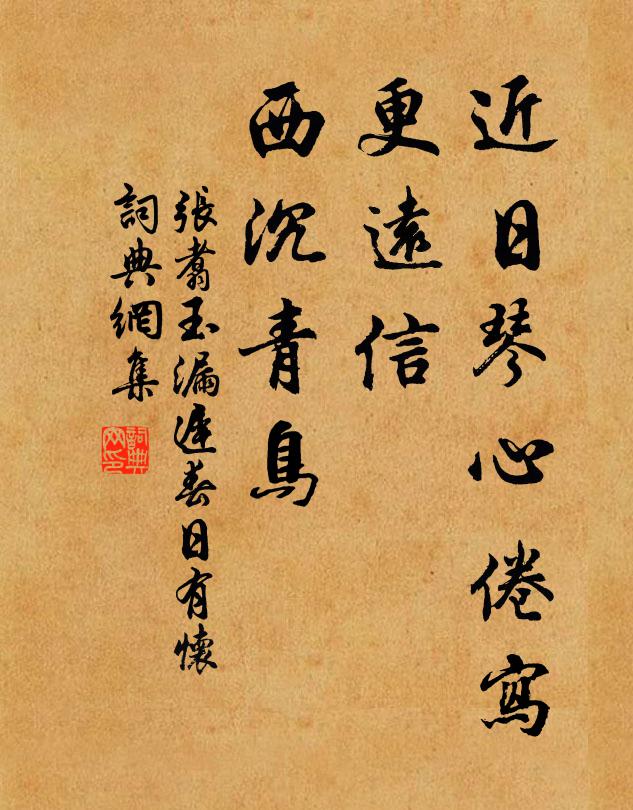 近日琴心倦寫
更遠信
西沉青鳥
張翥玉漏遲春日有懷
詞典網集
詞典網印